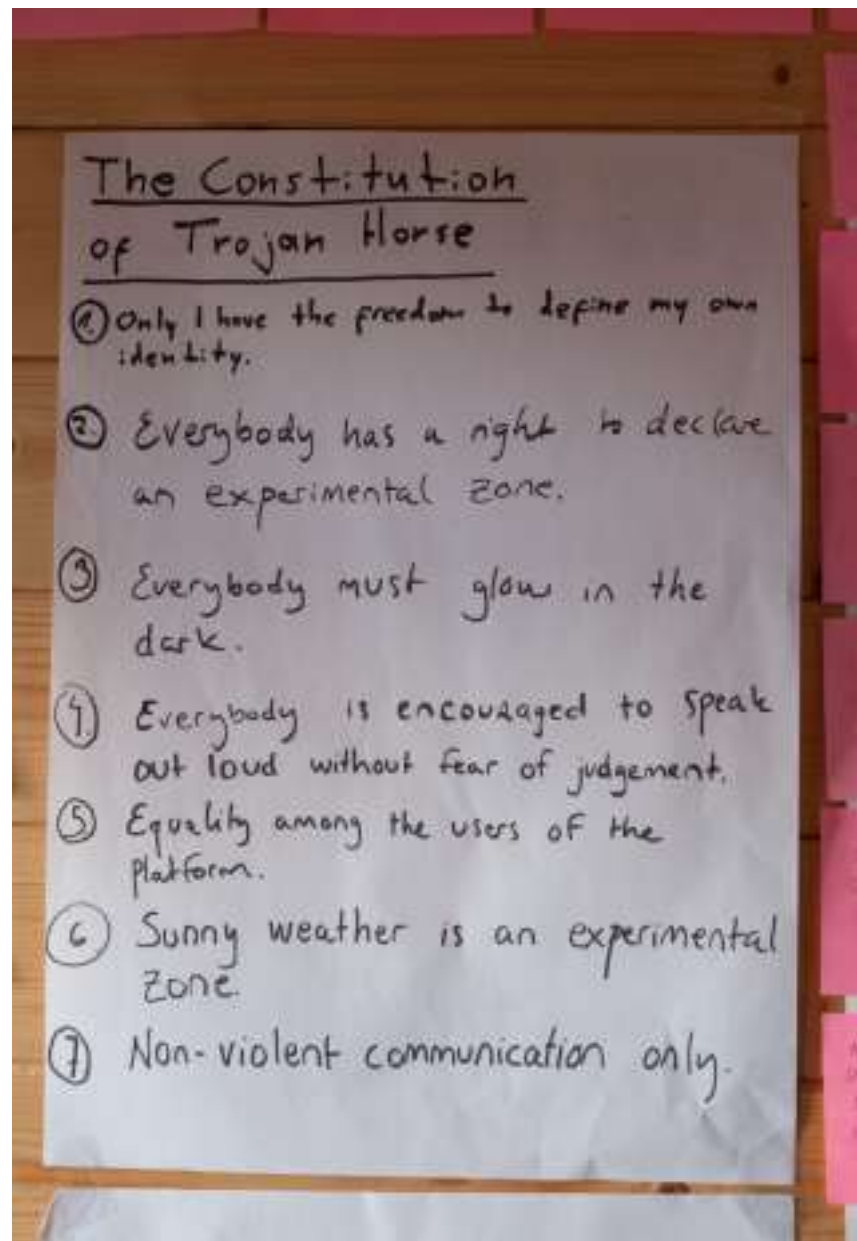 The Constitution
of Trojan Horse
1. Only I have the freedom to define my own
identity.
2. Everybody has a right to declare
an experimental zone.
3 Everybody must glow in the
dark.
4. Everybody is encouraged to speak
out loud without fear of judgement.
5 Equality among the users of the
platform.
6 Sunny weather is an experimental
zone.
7 Non-violent communication only.